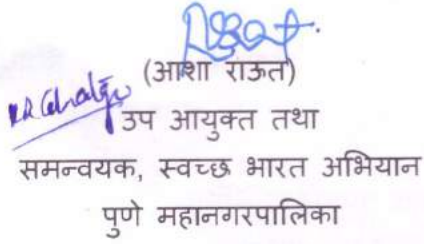 (आशा राऊत)
उप आयुक्त तथा
समन्वयक, स्वच्छ भारत अभियान
पुणे महानगरपालिका